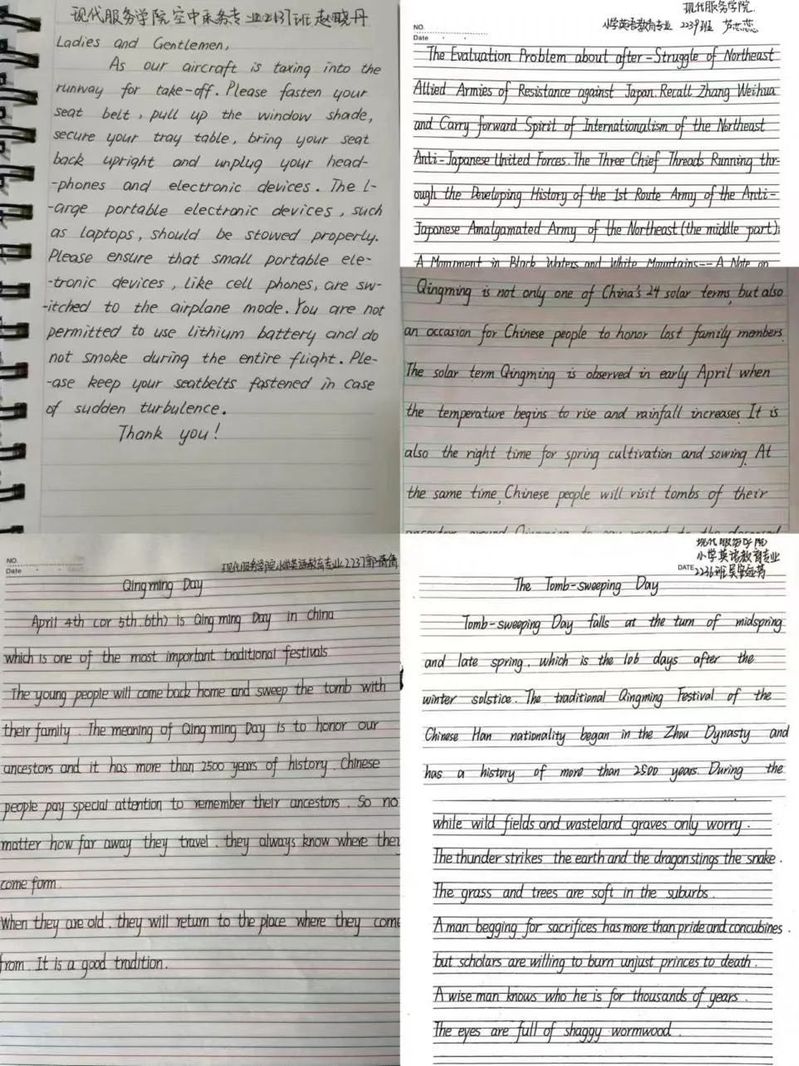 现代服务学院空中乘务专业2137班赵晓丹
Ladies and Gentlemen,
As our aircraft is taxing into the
runway for take-off. Please fasten your
seat belt, pull up the window shade,
secure your tray table, bring your seat
back upright and unplug your head-
-phones and electronic devices. The l-
-arge portable electronic devices, such
as laptops, should be stowed properly.
Please ensure that small portable ele-
-tronic devices, like cell phones, are sw-
-itched to the airplane mode. You are not
permitted to use lithium battery and do
not smoke during the entire flight. Ple-
-ase keep your seatbelts fastened in case
of sudden turbulence.
Thank you!
现代服务学院
小学英语教育专业 2239班
NO.
Date
The Evaluation Problem about after-Struggle of Northeast
Allied Armies of Resistance against Japan. Recall Zhang Weihua
and Carry forward Spirit of Internationalism of the Northeast
Anti-Japanese United Forces. The Three Chief Threads Running thr-
ough the Developing History of the 1st Route Army of the Anti-
Japanese Amalgamated Army of the Northeast (the middle part);
A Monument in Black Waters and White Mountains--A Note on
Qingming is not only one of China's 24 solar terms, but also
an occasion for Chinese people to honor lost family members.
The solar term Qingming is observed in early April when
the temperature begins to rise and rainfall increases. It is
also the right time for spring cultivation and sowing. At
the same time, Chinese people will visit tombs of their
NO.
Date
现代服务学院小学英语教育专业2237
Qingming Day
April 4th (or 5th.6th) is Qing ming Day in China
which is one of the most important traditional festivals
The young people will come back home and sweep the tomb with
their family. The meaning of Qing ming Day is to honor our
ancestors and it has more than 2500 years of history. Chinese
people pay special attention to remember their ancestors. So no
matter how far away they travel. they always know where they
come form.
When they are old. they will return to the place where they come
from. It is a good tradition.
现代服务学院
小学英语教育专业
DATE 2236班
The Tomb-sweeping Day
Tomb-sweeping Day falls at the turn of midspring
and late spring, which is the 106 days after the
winter solstice. The traditional Qingming Festival of the
Chinese Han nationality began in the Zhou Dynasty and
has a history of more than 2500 years. During the
while wild fields and wasteland graves only worry.
The thunder strikes the earth and the dragon stings the snake.
The grass and trees are soft in the suburbs.
A man begging for sacrifices has more than pride and concubines.
but scholars are willing to burn unjust princes to death.
A wise man knows who he is for thousands of years.
The eyes are full of shaggy wormwood.